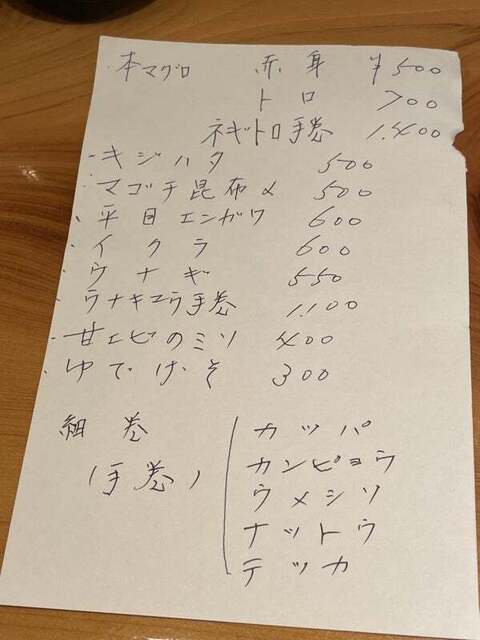 ・本マグロ 赤身 ¥500
トロ 700
ネギトロ手巻 1.400
・キジハタ 500
・マゴチ昆布〆 500
・平目エンガワ 600
・イクラ 600
・ウナギ 550
・ウナキュウ手巻 1.100
・甘エビのミソ 400
・ゆでげそ 300
細巻 カッパ
(手巻) カンピョウ
ウメシソ
ナットウ
テッカ